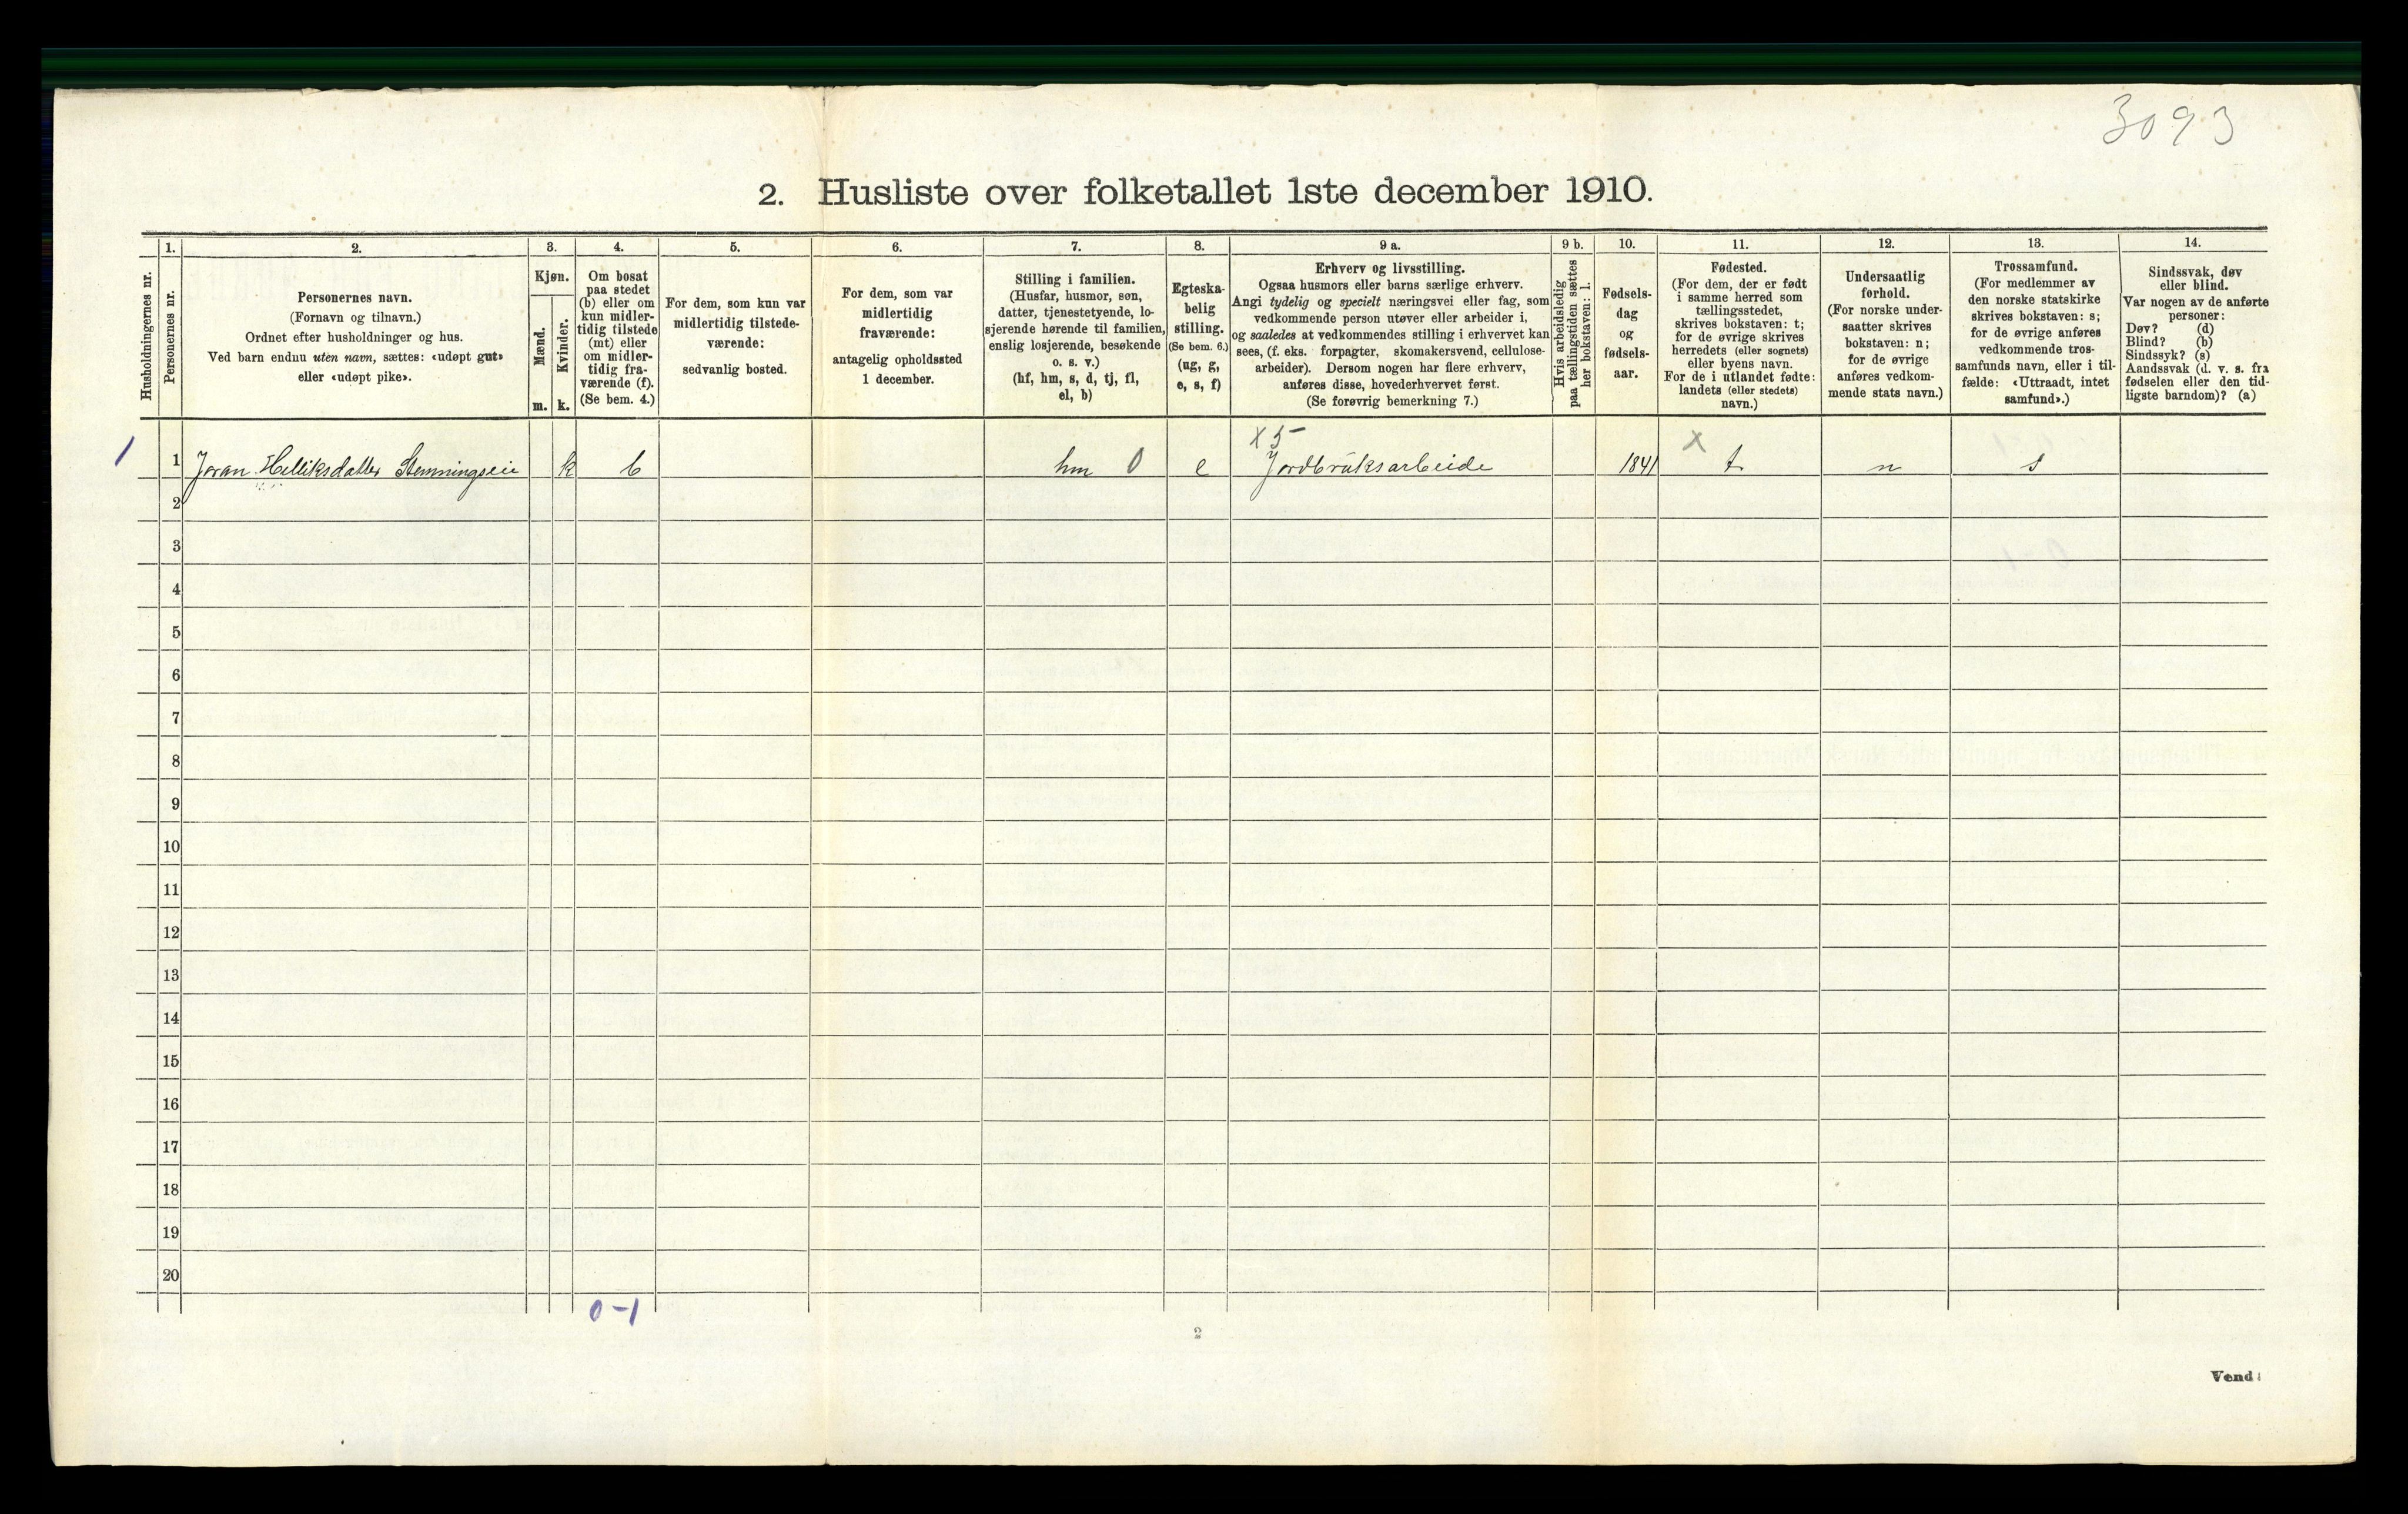 3093
2. Husliste over folketallet 1ste december 1910.
Husholdningernes nr.
1.
Personernes nr.
2.
Personernes navn.
(Fornavn og tilnavn.)
Ordnet efter husholdninger og hus.
Ved barn endnu uten navn, sættes: «udøpt gut»
eller «udøpt pike».
3.
Kjøn.
Mænd.
m.
Kvinder.
k.
4.
Om bosat
paa stedet
(b) eller om
kun midler-
tidig tilstede
(mt) eller
om midler-
tidig fra-
værende (f).
(Se bem. 4.)
5.
For dem, som kun var
midlertidig tilstede-
værende:
sedvanlig bosted.
6.
For dem, som var
midlertidig
fraværende:
antagelig opholdssted
1 december.
7.
Stilling i familien.
(Husfar, husmor, søn,
datter, tjenestetyende, lo-
sjerende hørende til familien,
enslig losjerende, besøkende
o. s. v.)
(hf, hm, s, d, tj, fl,
el, b)
8.
Egteska-
belig
stilling.
(Se bem. 6.)
(ug, g,
e, s, f)
9 a.
Erhverv og livsstilling.
Ogsaa husmors eller barns særlige erhverv.
Angi tydelig og specielt næringsvei eller fag, som
vedkommende person utøver eller arbeider i,
og saaledes at vedkommendes stilling i erhvervet kan
sees, (f. eks. forpagter, skomakersvend, cellulose-
arbeider). Dersom nogen har flere erhverv,
anføres disse, hovederhvervet først.
(Se forøvrig bemerkning 7.)
9 b.
Hvis arbeidsledig
paa tællingstiden sættes
her bokstaven: l.
10.
Fødsels-
dag
og
fødsels-
aar.
11.
Fødested.
(For dem, der er født
i samme herred som
tællingsstedet,
skrives bokstaven: t;
for de øvrige skrives
herredets (eller sognets)
eller byens navn.
For de i utlandet fødte:
landets (eller stedets)
navn.)
12.
Undersaatlig
forhold.
(For norske under-
saatter skrives
bokstaven: n;
for de øvrige
anføres vedkom-
mende stats navn.)
13.
Trossamfund.
(For medlemmer av
den norske statskirke
skrives bokstaven: s;
for de øvrige anføres
vedkommende tros-
samfunds navn, eller i til-
fælde: «Uttraadt, intet
samfund».)
14.
Sindssvak, døv
eller blind.
Var nogen av de anførte
personer:
Døv? (d)
Blind? (b)
Sindssyk? (s)
Aandssvak (d. v. s. fra
fødselen eller den tid-
ligste barndom)? (a)
x 5
1 1 Joran Helliksdatter Stemningseie k b hm 0 e Jordbruksarbeide 1841 x t n s
2
3
4
5
6
7
8
9
10
11
12
13
14
15
16
17
18
19
20
0-1
2
Vend!